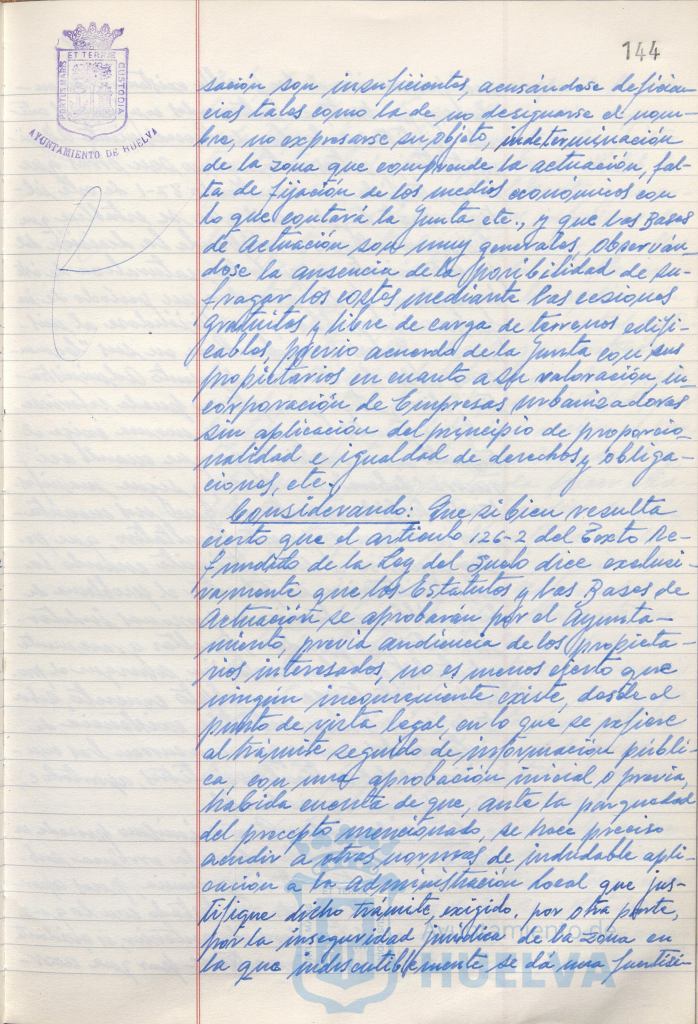 144
PORTUS MARIS ET TERRAE CUSTODIA
AYUNTAMIENTO DE HUELVA
sación son insuficientes, acusándose deficien-
cias tales como la de no designarse el nom-
bre, no expresarse su objeto, indeterminación
de la zona que comprende la actuación, fal-
ta de fijación de los medios económicos con
lo que contará la Junta etc., y que las Bases
de Actuación son muy generales, observán-
dose la ausencia de la posibilidad de su-
fragar los costes mediante las cesiones
gratuitas y libre de carga de terrenos edifi-
cables, previo acuerdo de la Junta con sus
propietarios en cuanto a su valoración, in-
corporación de Empresas urbanizadoras
sin aplicación del principio de proporcio-
nalidad e igualdad de derechos y obliga-
ciones, etc.
Considerando: Que si bien resulta
cierto que el artículo 126-2 del Texto Re-
fundido de la Ley del Suelo dice exclusi-
vamente que los Estatutos y las Bases de
Actuación se aprobarán por el Ayunta-
miento, previa audiencia de los propieta-
rios interesados, no es menos cierto que
ningún inconveniente existe, desde el
punto de vista legal, en lo que se refiere
al trámite seguido de información públi-
ca, con una aprobación inicial o previa,
habida cuenta de que, ante la parquedad
del precepto mencionado, se hace preciso
acudir a otras normas de indudable apli-
cación a la administración local que jus-
tifique dicho trámite, exigido, por otra parte,
por la inseguridad jurídica de la zona en
la que indiscutiblemente se da una fuertísi-
Ayuntamiento de
HUELVA